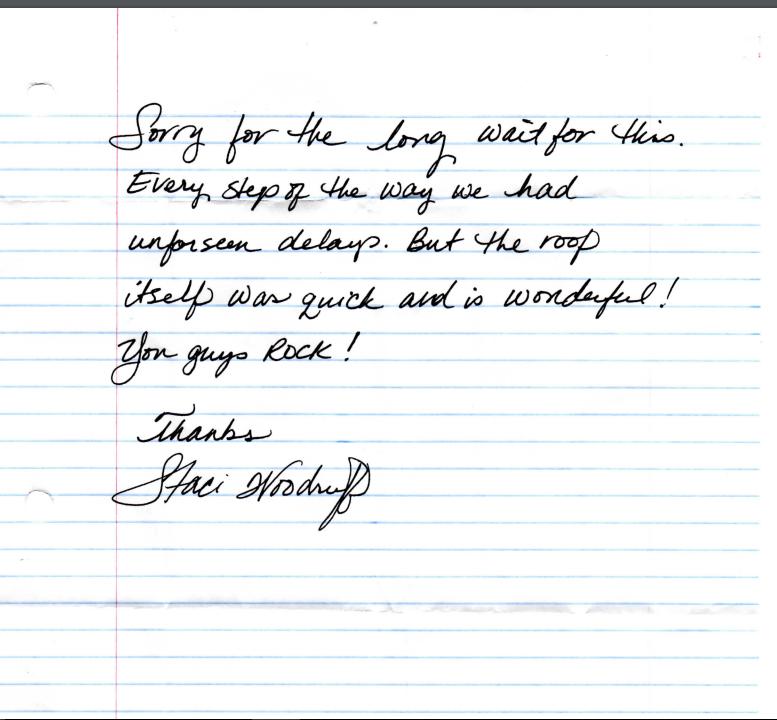 Sorry for the long wait for this.
Every step of the way we had
unforseen delays. But the roof
itself was quick and is wonderful!
You guys ROCK!
Thanks
Staci Woodruff